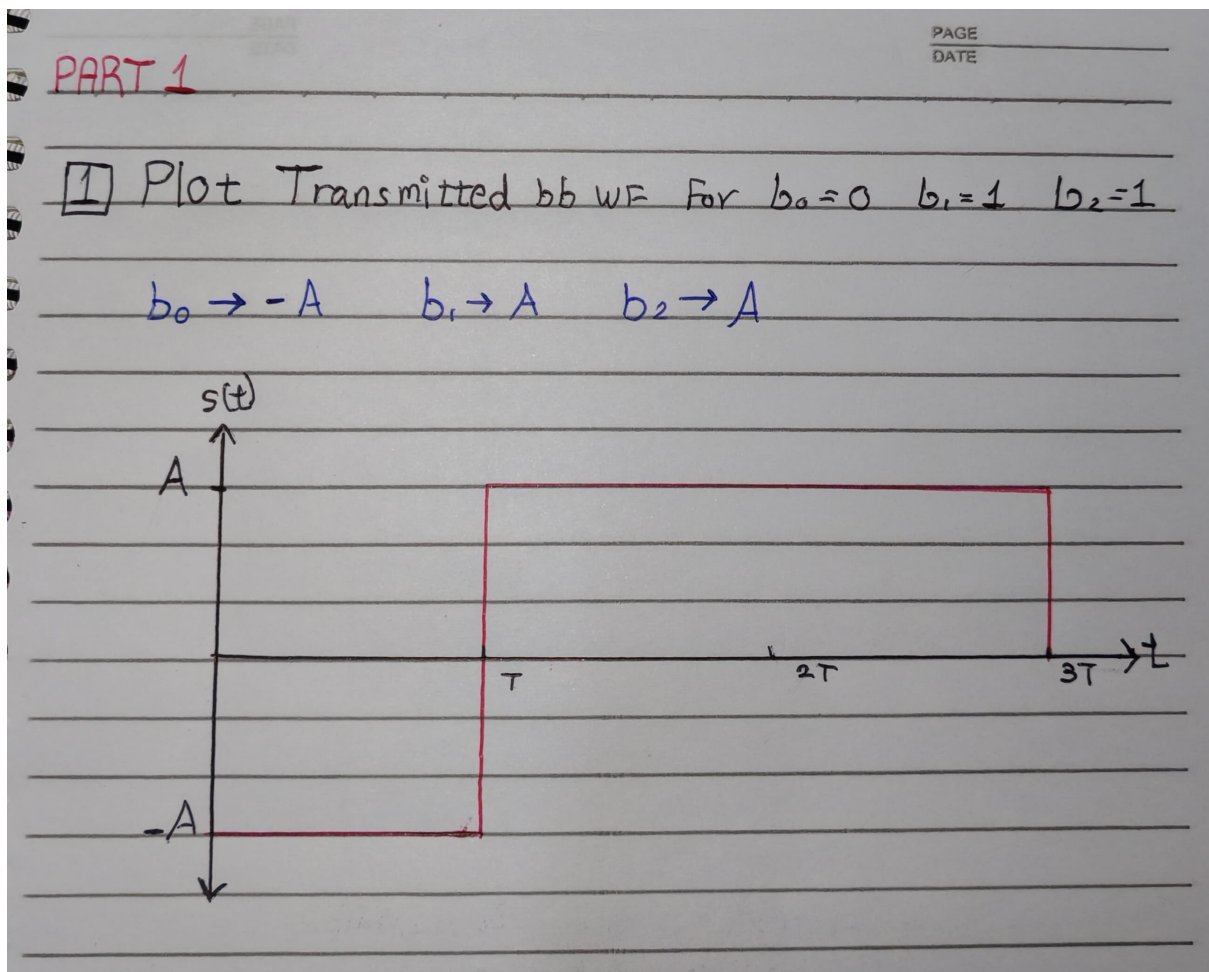 PAGE
DATE
PART 1
1 Plot Transmitted bb WF For b₀=0 b₁=1 b₂=1
b₀ → -A b₁ → A b₂ → A
s(t)
A
t
T 2T 3T
-A